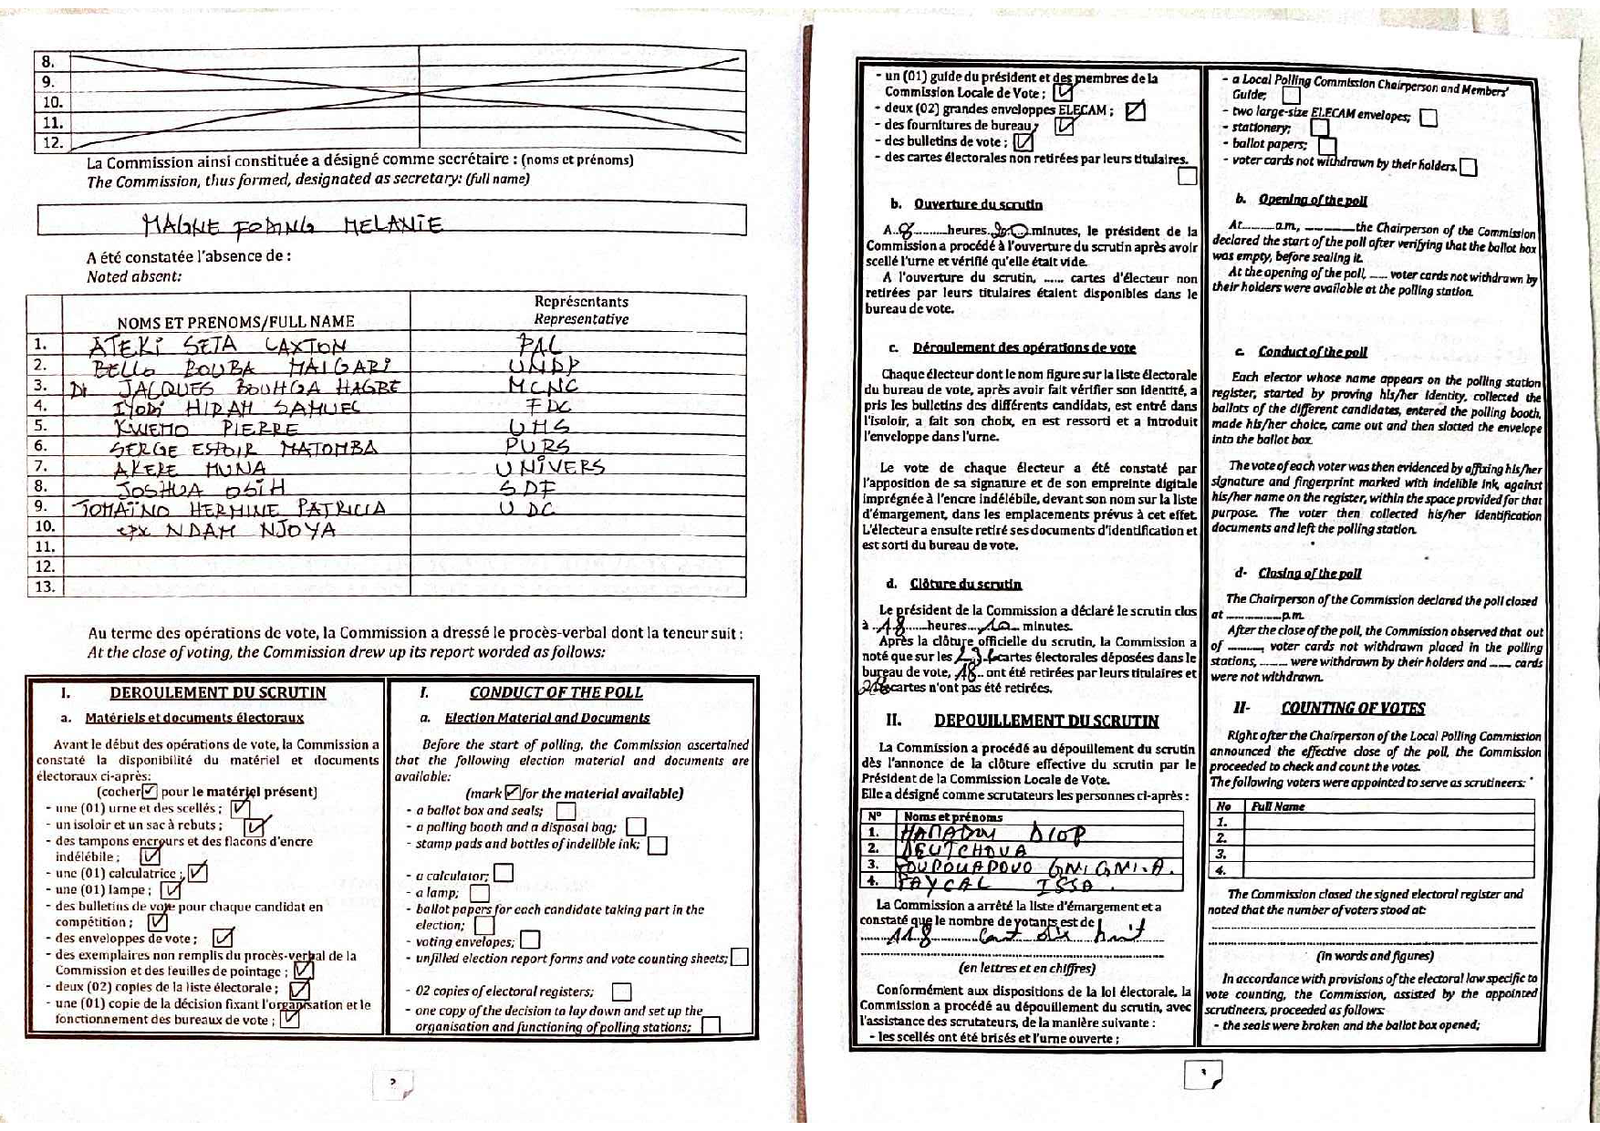 8.
9.
10.
11.
12.
La Commission ainsi constituée a désigné comme secrétaire : (noms et prénoms)
The Commission, thus formed, designated as secretary: (full name)
MAGNE FODING MELANIE
A été constatée l'absence de :
Noted absent:
NOMS ET PRENOMS/FULL NAME Représentants
Representative
1. ATEKI SETA CAXTON PAL
2. BELLO BOUBA MAIGARI UNDP
3. Dr JACQUES BOUHGA HAGBE MCNC
4. IYODI HIRAM SAMUEL FDC
5. KWEMO PIERRE UMS
6. SERGE ESPOIR MATOMBA PURS
7. AKERE MUNA UNIVERS
8. JOSHUA OSIH SDF
9. TOMAÏNO HERMINE PATRICIA UDC
10. epx NDAM NJOYA
11.
12.
13.
Au terme des opérations de vote, la Commission a dressé le procès-verbal dont la teneur suit :
At the close of voting, the Commission drew up its report worded as follows:
I. DEROULEMENT DU SCRUTIN
a. Matériels et documents électoraux
Avant le début des opérations de vote, la Commission a
constaté la disponibilité du matériel et documents
électoraux ci-après:
(cocher ✓ pour le matériel présent)
- une (01) urne et des scellés ;
- un isoloir et un sac à rebuts ;
- des tampons encreurs et des flacons d'encre
indélébile ;
- une (01) calculatrice ;
- une (01) lampe ;
- des bulletins de vote pour chaque candidat en
compétition ;
- des enveloppes de vote ;
- des exemplaires non remplis du procès-verbal de la
Commission et des feuilles de pointage ;
- deux (02) copies de la liste électorale ;
- une (01) copie de la décision fixant l'organisation et le
fonctionnement des bureaux de vote ;
I. CONDUCT OF THE POLL
a. Election Material and Documents
Before the start of polling, the Commission ascertained
that the following election material and documents are
available:
(mark ✓ for the material available)
- a ballot box and seals;
- a polling booth and a disposal bag;
- stamp pads and bottles of indelible ink;
- a calculator;
- a lamp;
- ballot papers for each candidate taking part in the
election;
- voting envelopes;
- unfilled election report forms and vote counting sheets;
- 02 copies of electoral registers;
- one copy of the decision to lay down and set up the
organisation and functioning of polling stations;
2
- un (01) guide du président et des membres de la
Commission Locale de Vote ;
- deux (02) grandes enveloppes ELECAM ;
- des fournitures de bureau ;
- des bulletins de vote ;
- des cartes électorales non retirées par leurs titulaires.
b. Ouverture du scrutin
A 8 heures minutes, le président de la
Commission a procédé à l'ouverture du scrutin après avoir
scellé l'urne et vérifié qu'elle était vide.
A l'ouverture du scrutin, ...... cartes d'électeur non
retirées par leurs titulaires étaient disponibles dans le
bureau de vote.
c. Déroulement des opérations de vote
Chaque électeur dont le nom figure sur la liste électorale
du bureau de vote, après avoir fait vérifier son identité, a
pris les bulletins des différents candidats, est entré dans
l'isoloir, a fait son choix, en est ressorti et a introduit
l'enveloppe dans l'urne.
Le vote de chaque électeur a été constaté par
l'apposition de sa signature et de son empreinte digitale
imprégnée à l'encre indélébile, devant son nom sur la liste
d'émargement, dans les emplacements prévus à cet effet.
L'électeur a ensuite retiré ses documents d'identification et
est sorti du bureau de vote.
d. Clôture du scrutin
Le président de la Commission a déclaré le scrutin clos
à 18 heures 10 minutes.
Après la clôture officielle du scrutin, la Commission a
noté que sur les cartes électorales déposées dans le
bureau de vote, 18 ont été retirées par leurs titulaires et
cartes n'ont pas été retirées.
II. DEPOUILLEMENT DU SCRUTIN
La Commission a procédé au dépouillement du scrutin
dès l'annonce de la clôture effective du scrutin par le
Président de la Commission Locale de Vote.
Elle a désigné comme scrutateurs les personnes ci-après :
N° Noms et prénoms
1. HAMADOU DIOP
2. DEUTCHOUA
3.
4. FAYCAL ISSA
La Commission a arrêté la liste d'émargement et a
constaté que le nombre de votants est de
118 Cent dix huit
(en lettres et en chiffres)
Conformément aux dispositions de la loi électorale, la
Commission a procédé au dépouillement du scrutin, avec
l'assistance des scrutateurs, de la manière suivante :
- les scellés ont été brisés et l'urne ouverte ;
- a Local Polling Commission Chairperson and Members'
Guide;
- two large-size ELECAM envelopes;
- stationery;
- ballot papers;
- voter cards not withdrawn by their holders.
b. Opening of the poll
At........a.m, ________the Chairperson of the Commission
declared the start of the poll after verifying that the ballot box
was empty, before sealing it.
At the opening of the poll, ____ voter cards not withdrawn by
their holders were available at the polling station.
c. Conduct of the poll
Each elector whose name appears on the polling station
register, started by proving his/her identity, collected the
ballots of the different candidates, entered the polling booth,
made his/her choice, came out and then slotted the envelope
into the ballot box.
The vote of each voter was then evidenced by affixing his/her
signature and fingerprint marked with indelible ink, against
his/her name on the register, within the space provided for that
purpose. The voter then collected his/her identification
documents and left the polling station.
d- Closing of the poll
The Chairperson of the Commission declared the poll closed
at ................p.m.
After the close of the poll, the Commission observed that out
of ________, voter cards not withdrawn placed in the polling
stations, ______ were withdrawn by their holders and ____ cards
were not withdrawn.
II- COUNTING OF VOTES
Right after the Chairperson of the Local Polling Commission
announced the effective close of the poll, the Commission
proceeded to check and count the votes.
The following voters were appointed to serve as scrutineers:
No Full Name
1.
2.
3.
4.
The Commission closed the signed electoral register and
noted that the number of voters stood at:
(in words and figures)
In accordance with provisions of the electoral law specific to
vote counting, the Commission, assisted by the appointed
scrutineers, proceeded as follows:
- the seals were broken and the ballot box opened;
3